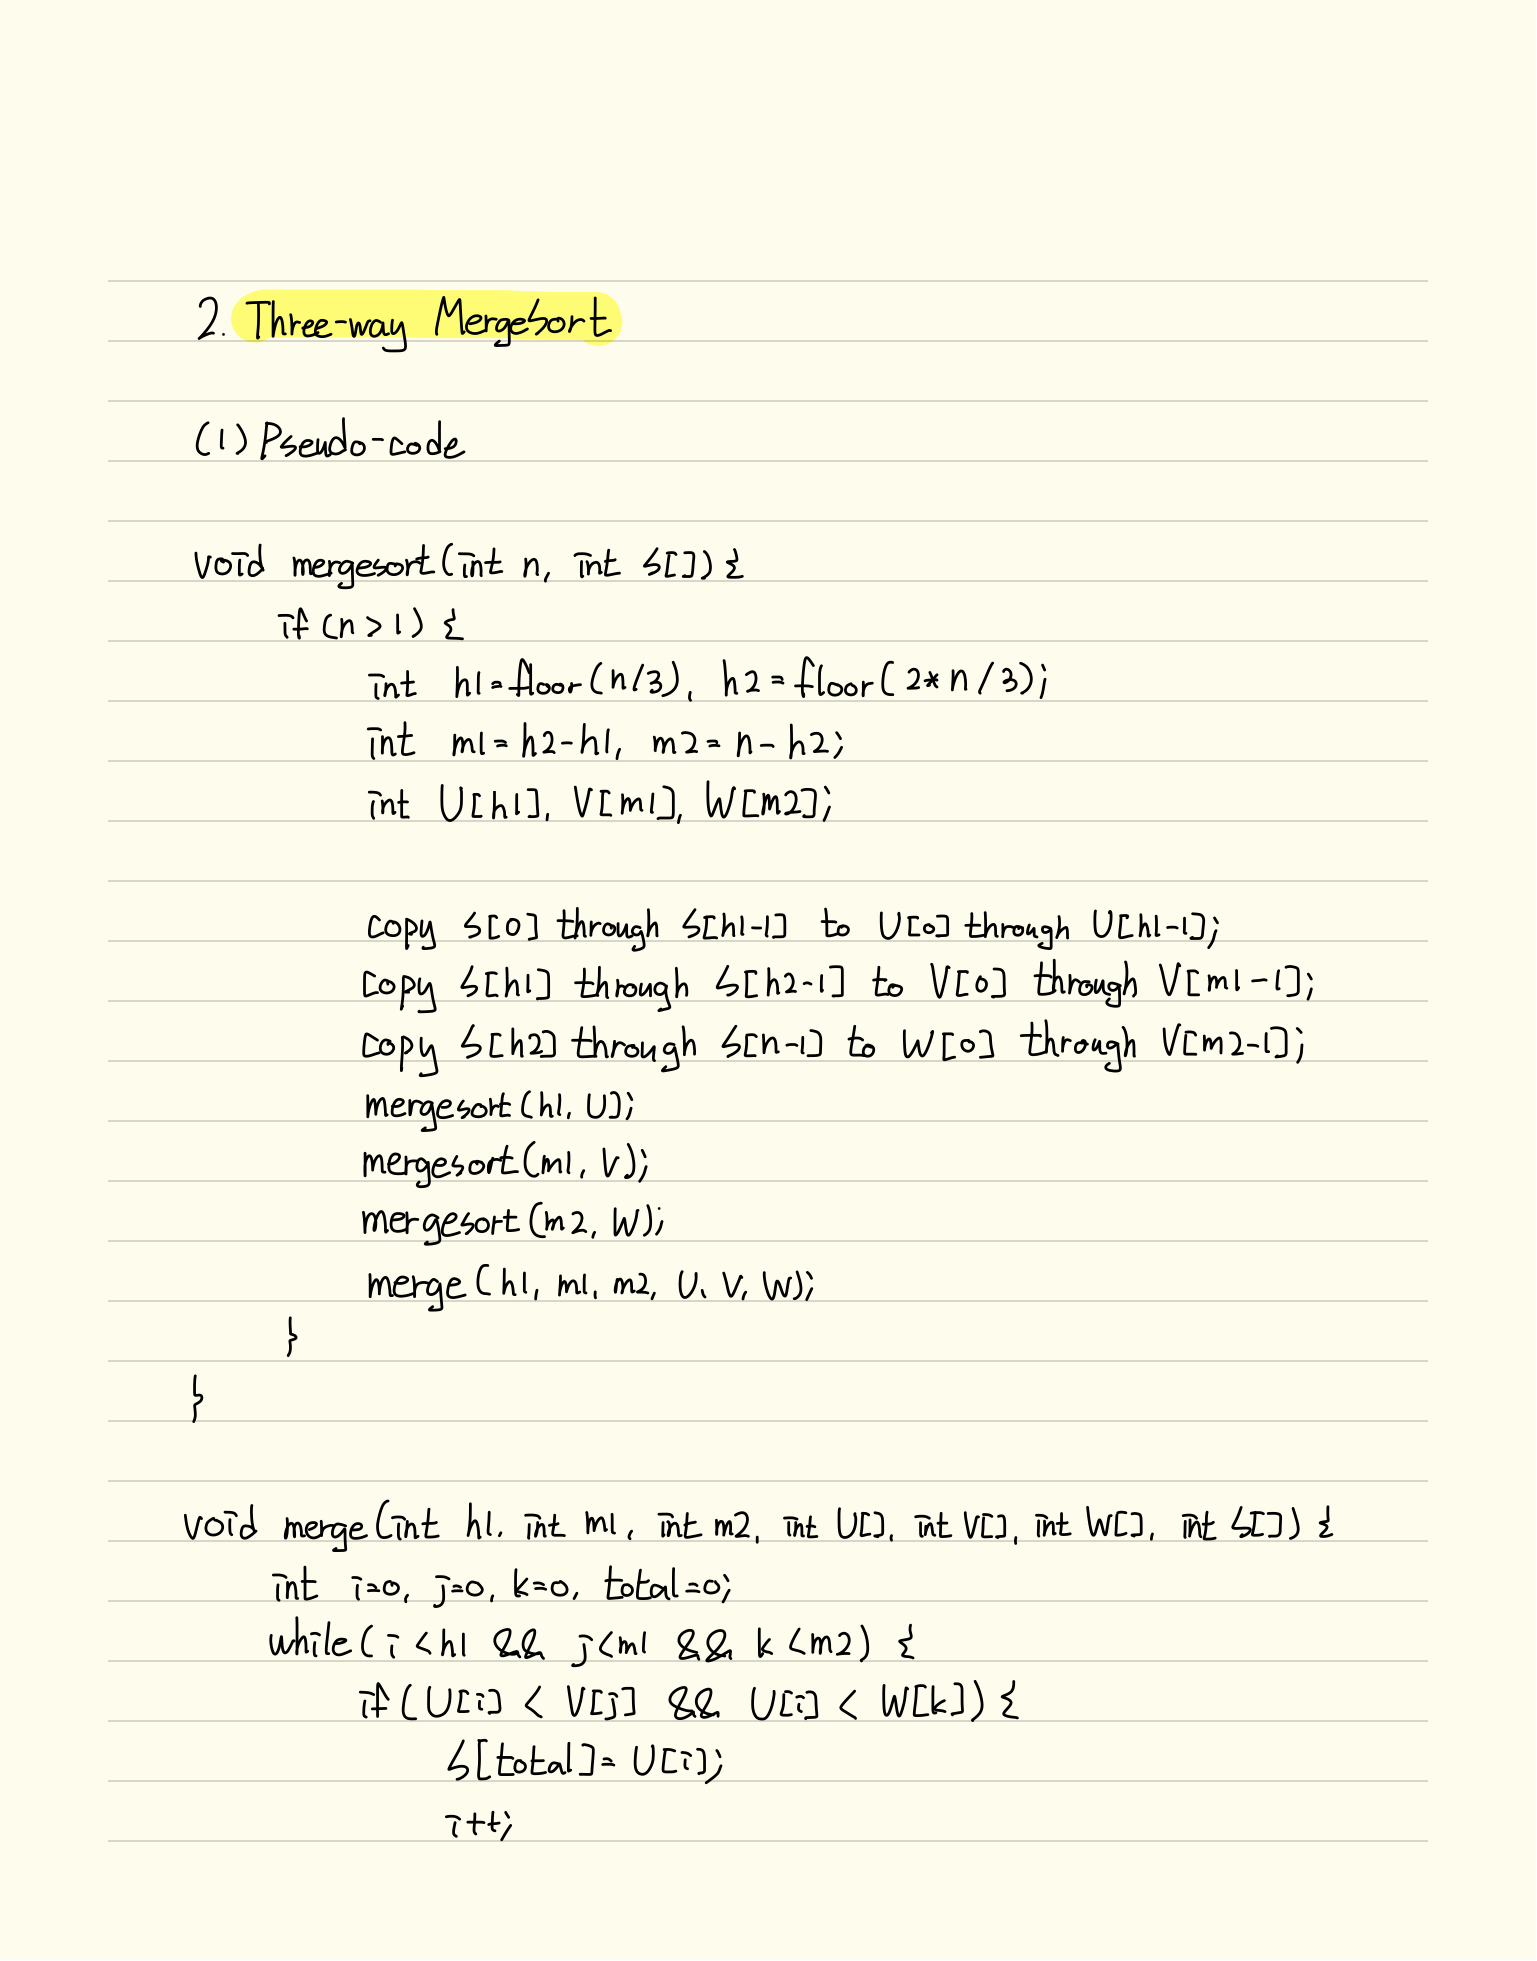 2. Three-way MergeSort
(1) Pseudo-code
void mergesort(int n, int S[]) {
if (n > 1) {
int h1=floor(n/3), h2=floor(2*n/3);
int m1=h2-h1, m2=n-h2;
int U[h1], V[m1], W[m2];
copy S[0] through S[h1-1] to U[0] through U[h1-1];
copy S[h1] through S[h2-1] to V[0] through V[m1-1];
copy S[h2] through S[n-1] to W[0] through V[m2-1];
mergesort(h1, U);
mergesort(m1, V);
mergesort(m2, W);
merge(h1, m1, m2, U, V, W);
}
}
void merge(int h1, int m1, int m2, int U[], int V[], int W[], int S[]) {
int i=0, j=0, k=0, total=0;
while(i<h1 && j<m1 && k<m2) {
if(U[i] < V[j] && U[i] < W[k]) {
S[total]=U[i];
i++;